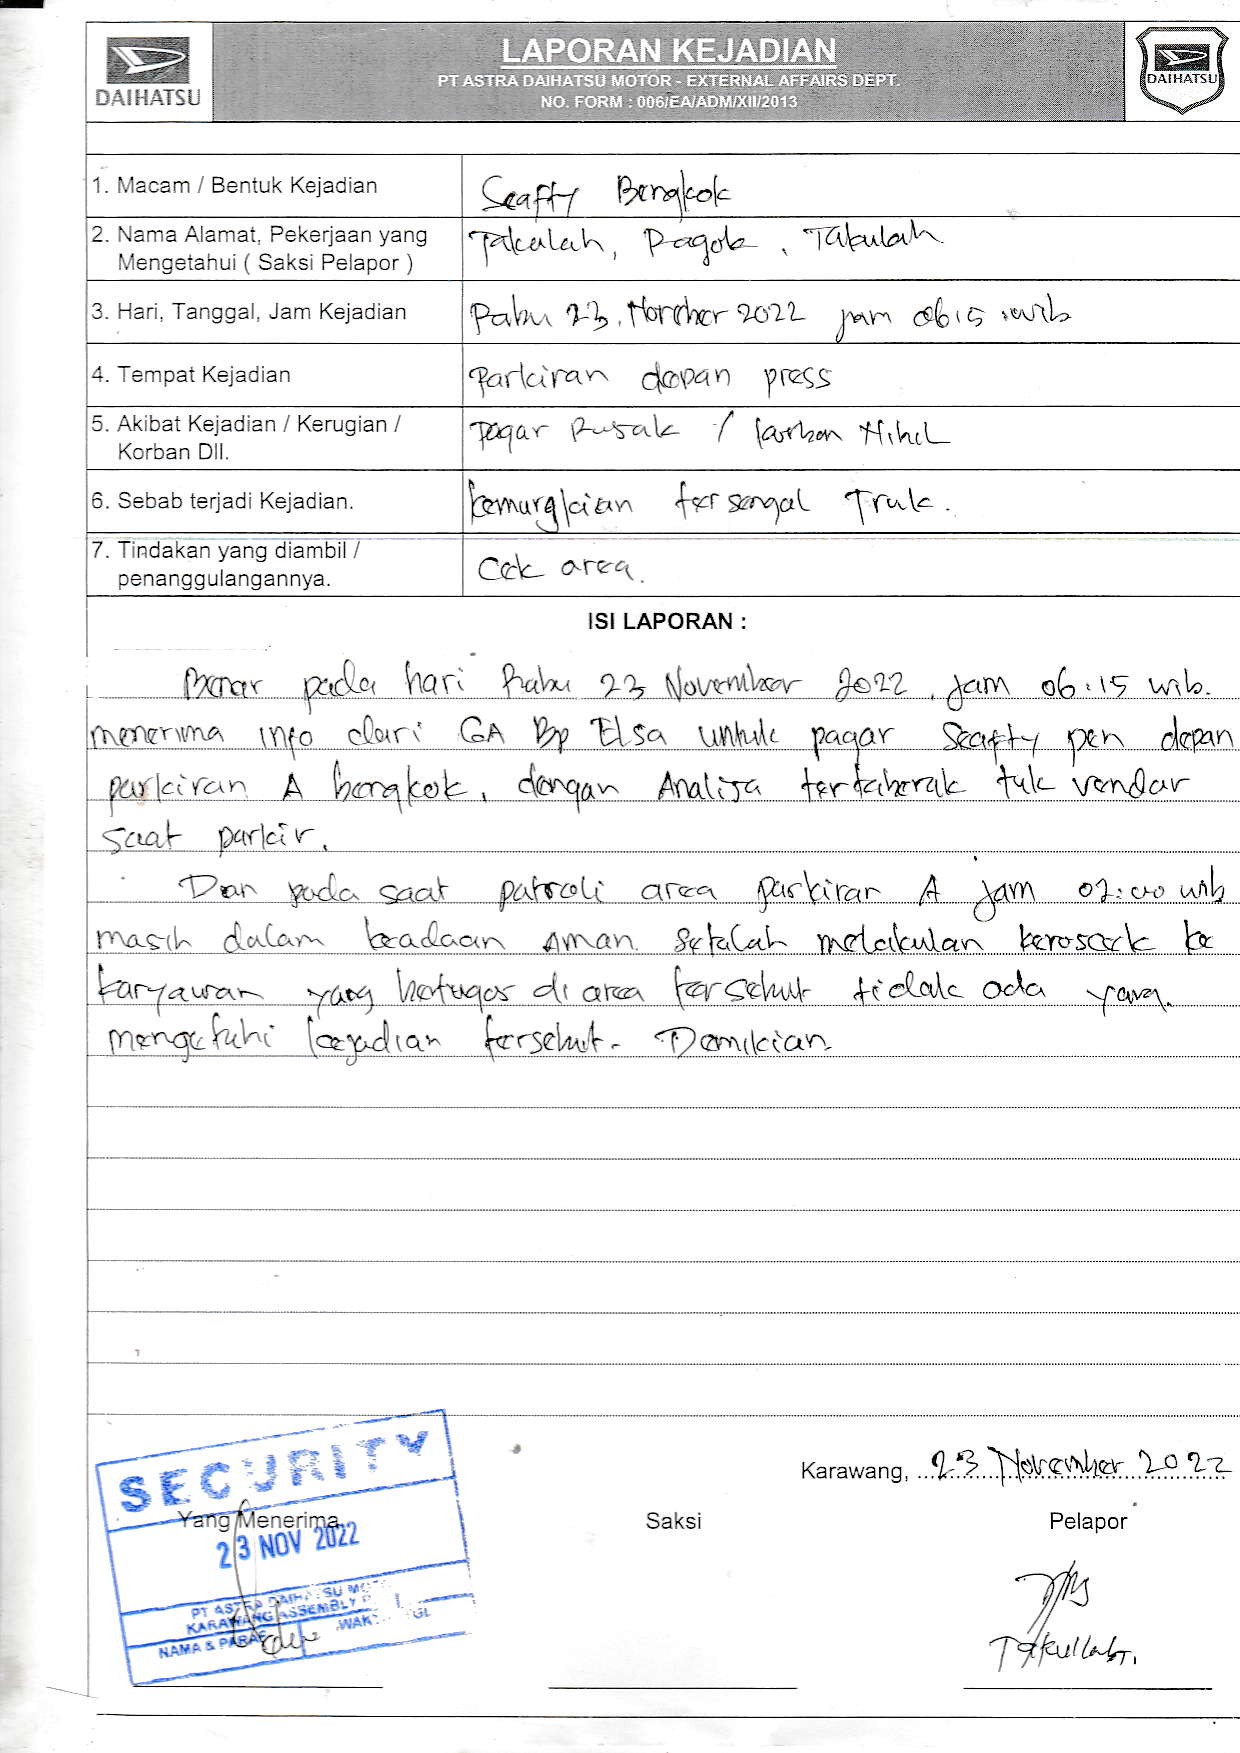 DAIHATSU
LAPORAN KEJADIAN
PT ASTRA DAIHATSU MOTOR - EXTERNAL AFFAIRS DEPT.
NO. FORM : 006/EA/ADM/XII/2013
DAIHATSU
1. Macam / Bentuk Kejadian
Seafty Bengkok
2. Nama Alamat, Pekerjaan yang
Mengetahui ( Saksi Pelapor )
3. Hari, Tanggal, Jam Kejadian
Rabu 23, November 2022 jam 06:15 wib
4. Tempat Kejadian
Parkiran depan press
5. Akibat Kejadian / Kerugian /
Korban Dll.
Pagar Rusak / korban Nihil
6. Sebab terjadi Kejadian.
kemungkian tersengal Truk.
7. Tindakan yang diambil /
penanggulangannya.
Cek area.
ISI LAPORAN :
Benar pada hari Rabu 23 November 2022, jam 06:15 wib.
menerima info dari GA Bp Elsa untuk pagar Seafty pen depan
parkiran A bengkok, dengan Analisa tertaberak tuk vendor
saat parkir.
Dan pada saat patroli area parkiran A jam 02:00 wib
masih dalam keadaan aman. Setalah melakukan kerosscek ke
karyawan yang bertugas di area tersebut tidak ada yang
mengetuhi kejadian tersebut. Demikian
SECURITY
Karawang, 23 November 2022
Yang Menerima
Saksi
Pelapor
23 NOV 2022
PT ASTRA DAIHATSU MOT
KARAWANG ASSEMBLY P
NAMA & PARAF
WAKT TGL
Takullah.